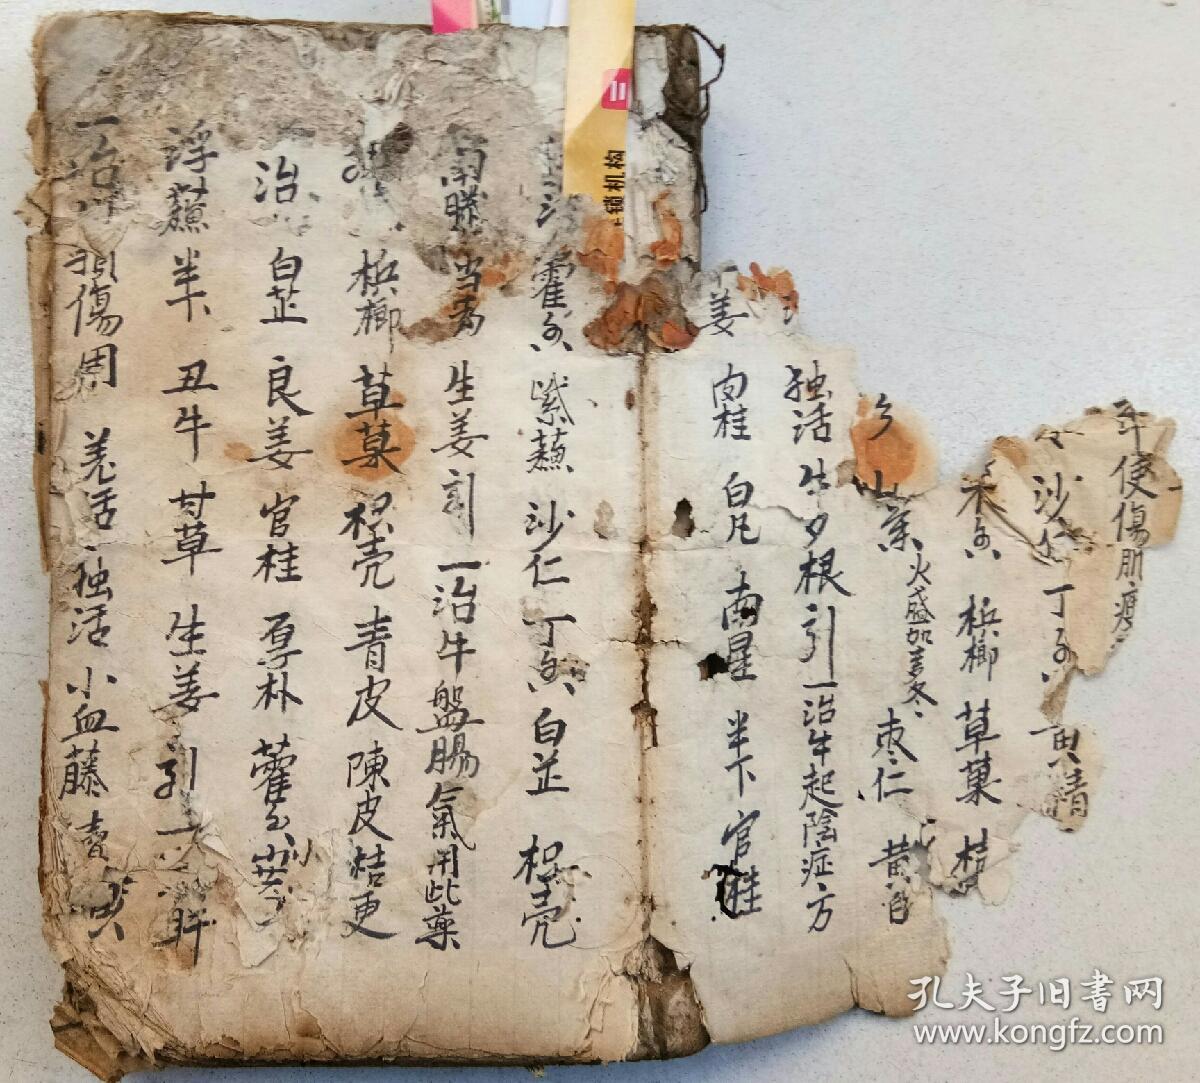 年使傷肌瘦
沙仁 丁香 黄精
木香 梹榔 草菓 桔
火盛加麦冬 枣仁 黄
独活 牛夕根引 一治牛起陰症方
姜 肉桂 白凡 南星 半下 官桂
霍香 紫蘓 沙仁 丁香 白芷 枳壳
当 生姜引 一治牛盤腸氣用此藥
梹榔 草菓 枳壳 青皮 陳皮 桔更
治 白芷 良姜 官桂 厚朴 藿香
浮蘓 半下 丑牛 甘草 生姜引 一
一治 損傷周 羌活 独活 小血藤
上锁机构
孔夫子旧書网
www.kongfz.com